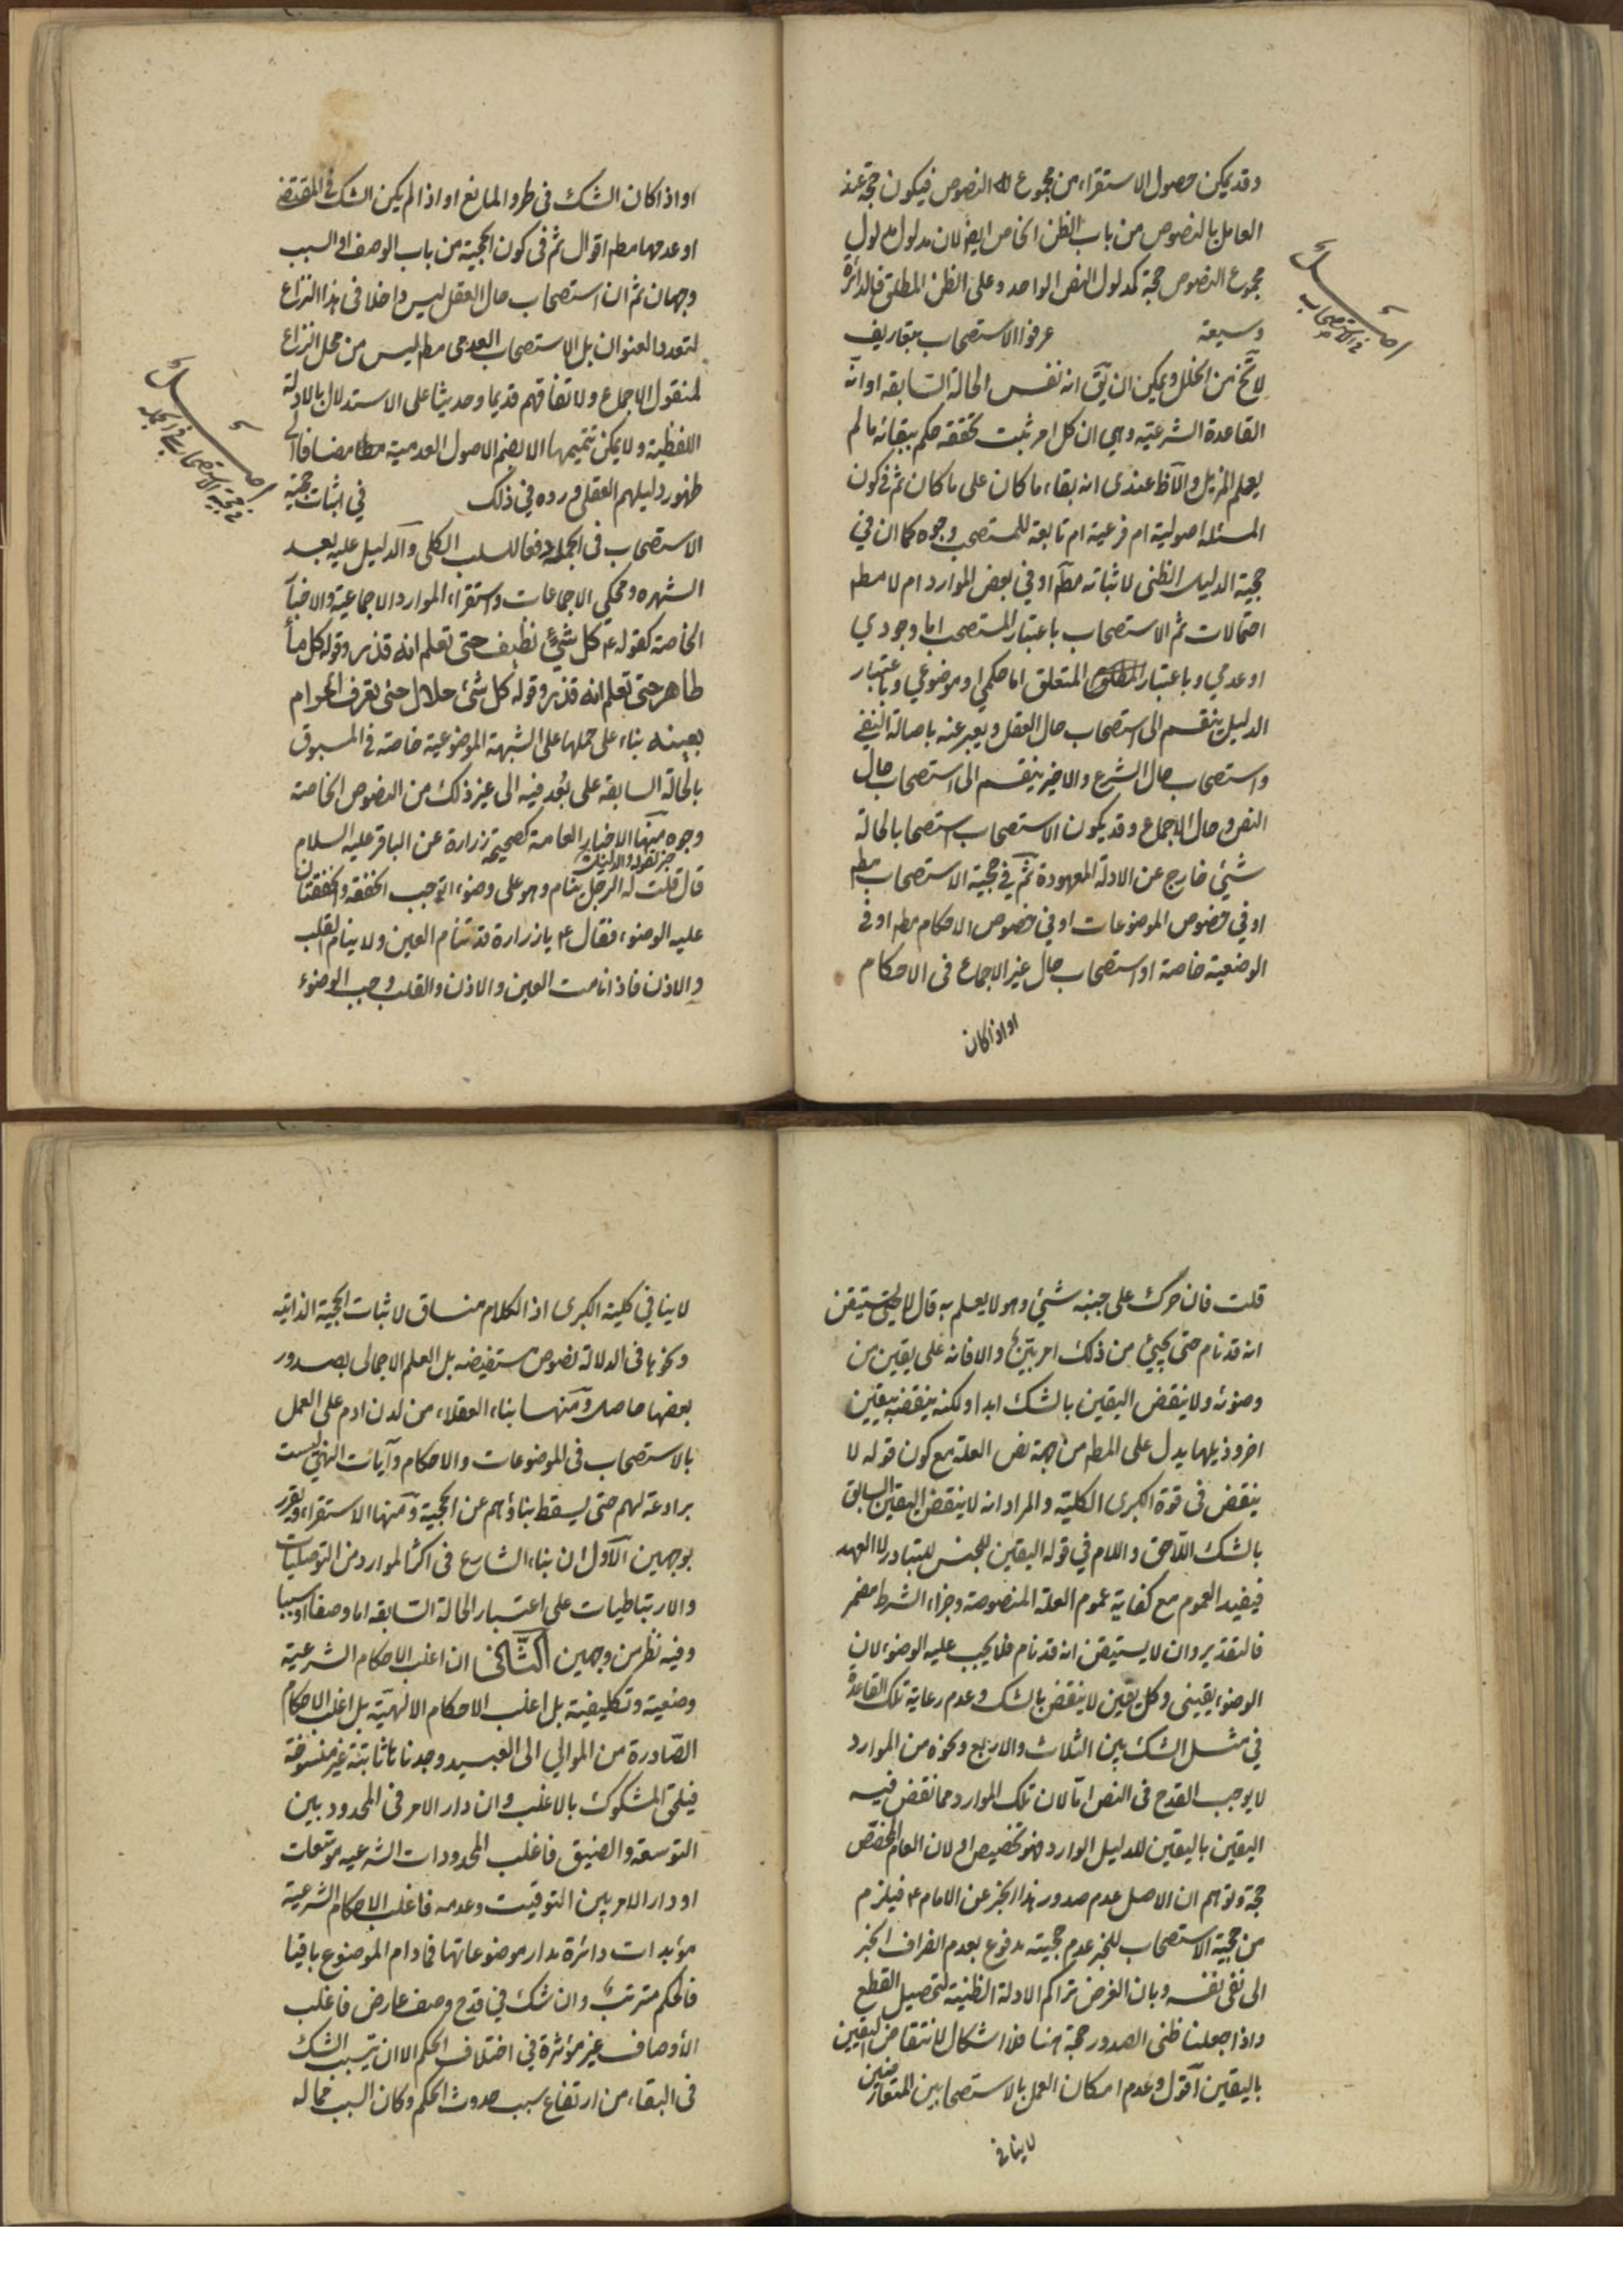 وقد يمكن حصول الاستقراء من مجموع النصوص فيكون حجة عند
العامل بالنصوص من باب الظن الخاص ايض لان مدلول مدلول
مجموع النصوص حجة كمدلول النص الواحد وعلى الظن المطلق فالدائرة
وسيعة عرفوا الاستصحاب بتعاريف
اصل
في الاستصحاب
لا تخ من الخلل ويمكن ان يق انه نفس الحالة السابقه او انه
القاعدة الشرعية وهي ان كل امر ثبت تحققه حكم ببقائه ما لم
يعلم المزيل والاظ عندى انه بقاء ما كان على ما كان ثم في كون
المسئله اصولية ام فرعية ام تابعة للمستصحب وجوه كما ان في
حجية الدليل الظنى لاثباته مطا او في بعض الموارد ام لا مطم
احتمالات ثم الاستصحاب باعتبار المستصحب اما وجودي
او عدمي وباعتبار المتعلق اما حكمي او موضوعي وباعتبار
الدليل ينقسم الى استصحاب حال العقل ويعبر عنه باصالة النفي
واستصحاب حال الشرع والاخير ينقسم الى استصحاب حال
النص وحال الاجماع وقد يكون الاستصحاب استصحابا لحالة
شيئ خارج عن الادلة المعهودة ثم في حجية الاستصحاب مطم
او في خصوص الموضوعات او في خصوص الاحكام مطم او في
الوضعية خاصة او استصحاب حال غير الاجماع فى الاحكام
او اذا كان
او اذا كان الشك فى طرو المانع او اذا لم يكن الشك في المقتضى
او عدمها مطم اقوال ثم فى كون الحجية من باب الوصف او السبب
وجهان ثم ان استصحاب حال العقل ليس داخلا فى هذا النزاع
لتعدد العنوان بل الاستصحاب العدمى مطم ليس من محل النزاع
لمنقول الاجماع ولاتفاقهم قديما وحديثا على الاستدلال بالادلة
اللفظية ولا يمكن تتميمها الا بضم الاصول العدمية مضافا الى
ظهور دليلهم العقلى وردوه في ذلك في اثبات حجية
اصل
في حجية الاستصحاب في الجملة
الاستصحاب فى الجملة دفعا للسلب الكلى والدليل عليه بعد
الشهره ومحكي الاجماعات واستقراء الموارد الاجماعية والاخبار
الخاصة كقوله ع كل شيئ نظيف حتى تعلم انه قذر وقوله كل ماء
طاهر حتى تعلم انه قذر وقوله كل شئ حلال حتى تعرف الحرام
بعينه بناء على حملها على الشبهة الموضوعية خاصة في المسبوق
بالحالة السابقه على بُعد فيه الى غير ذلك من النصوص الخاصة
وجوه منها الاخبار العامة كصحيحة زرارة عن الباقر عليه السلام
قال قلت له الرجل ينام وهو على وضوء اتوجب الخفقة والخفقتان
عليه الوضوء فقال ع يا زرارة قد تنام العين ولا ينام القلب
والاذن فاذا نامت العين والاذن والقلب وجب الوضوء
قلت فان حرك على جنبه شيئ وهو لا يعلم به قال لا حتى يستيقن
انه قد نام حتى يجيئ من ذلك امر بيّن والا فانه على يقين من
وضوئه ولا ينقض اليقين بالشك ابدا ولكنه ينقضه بيقين
اخر وذيلها يدل على المطم من جهة نص العلة مع كون قوله لا
ينقض فى قوة الكبرى الكلية والمراد انه لا ينقض اليقين السابق
بالشك اللاحق واللام في قوله اليقين للجنس للتبادر لا العهد
فيفيد العموم مع كفاية عموم العلة المنصوصة وجزاء الشرط مضمر
فالتقدير وان لا يستيقن انه قد نام فلا يجب عليه الوضوء لان
الوضوء يقينى وكل يقين لا ينقض بالشك وعدم رعاية تلك القاعدة
في مثل الشك بين الثلاث والاربع ونحوه من الموارد
لا يوجب القدح فى النص اما لان تلك الموارد مما نقض فيه
اليقين باليقين للدليل الوارد فهو تخصيص او لان العام المخصص
حجة وتوهم ان الاصل عدم صدور هذا الخبر عن الامام ع فيلزم
من حجية الاستصحاب للخبر عدم حجيته مدفوع بعدم انصراف الخبر
الى نفى نفسه وبان الغرض تراكم الادلة الظنية لتحصيل القطع
واذا جعلنا ظنى الصدور حجة هنا فلا اشكال لانتقاض اليقين
باليقين اقول وعدم امكان العمل بالاستصحابين المتعارضين
لا ينافي
لا ينافي كلية الكبرى اذ الكلام منساق لاثبات الحجية الذاتيه
ونحوها فى الدلالة نصوص مستفيضه بل العلم الاجمالى بصدور
بعضها حاصل ومنها بناء العقلاء من لدن ادم على العمل
بالاستصحاب فى الموضوعات والاحكام وآيات النهي ليست
برادعة لهم حتى يسقط بناؤهم عن الحجية ومنها الاستقراء ويقرر
بوجهين الاول ان بناء الشارع فى اكثر الموارد من التوصليات
والارتباطيات على اعتبار الحالة السابقه اما وصفا او سببا
وفيه نظر من وجهين الثاني ان اغلب الاحكام الشرعية
وضعية وتكليفية بل اغلب الاحكام الالهية بل اغلب الاحكام
الصادرة من الموالي الى العبيد وجدناها ثابتة غير منسوخة
فيلحق المشكوك بالاغلب وان دار الامر فى المحدود بين
التوسعة والضيق فاغلب المحدودات الشرعيه موسعات
او دار الامر بين التوقيت وعدمه فاغلب الاحكام الشرعية
مؤبدات دائرة مدار موضوعاتها فما دام الموضوع باقيا
فالحكم مترتب وان شك في قدح وصف عارض فاغلب
الأوصاف غير مؤثرة في اختلاف الحكم الا ان يتسبب الشك
فى البقاء من ارتفاع سبب حدوث الحكم وكان السبب مما له